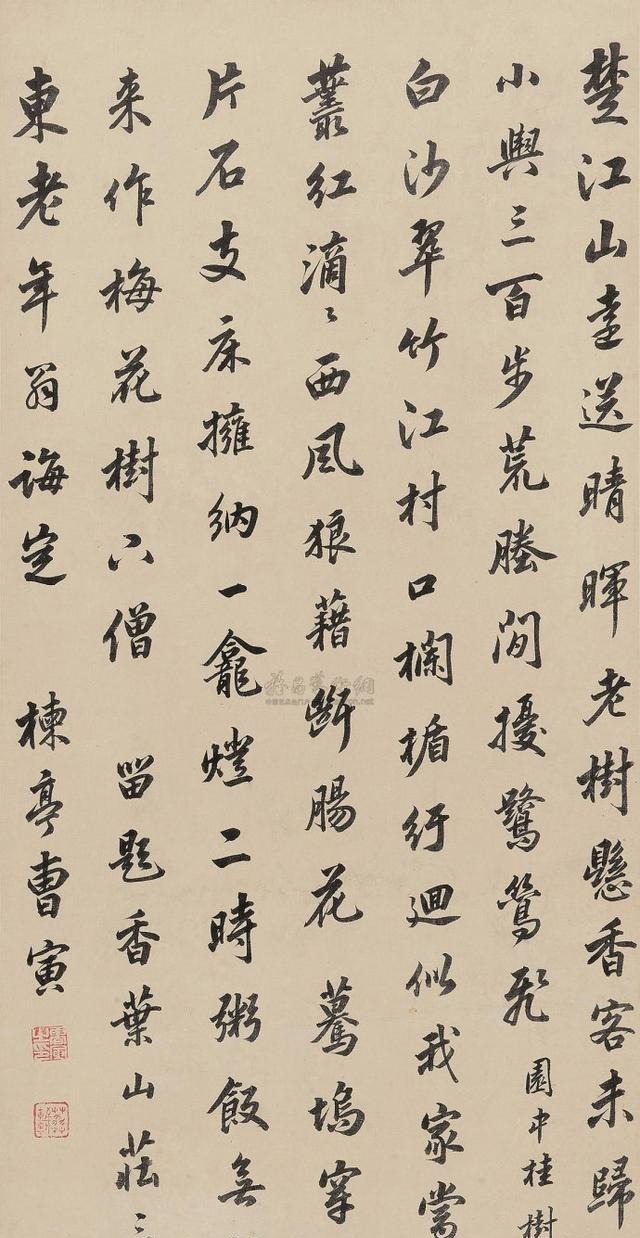 楚江山臺送晴暉老樹懸香客未歸
小輿三百步荒塍閒擾鷺鶯飛 園中桂樹
白沙翠竹江村口欄楯紆迴似我家當
叢紅滴〻西風狼藉斷腸花 驀塢穿
片石支床擁衲一龕燈二時粥飯無
来作梅花樹下僧 留題香葉山莊三
東老年翁誨定 楝亭曹寅